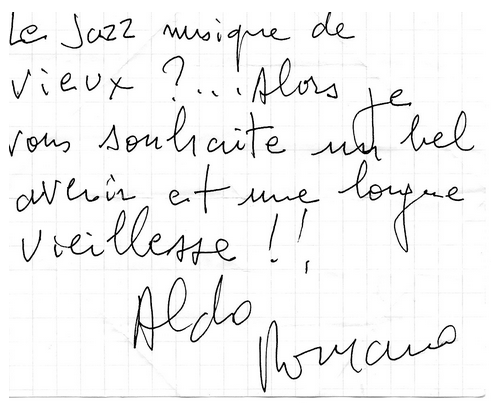 Le Jazz musique de
vieux ?... Alors je
vous souhaite un bel
avenir et une longue
vieillesse !!
Aldo
Romano